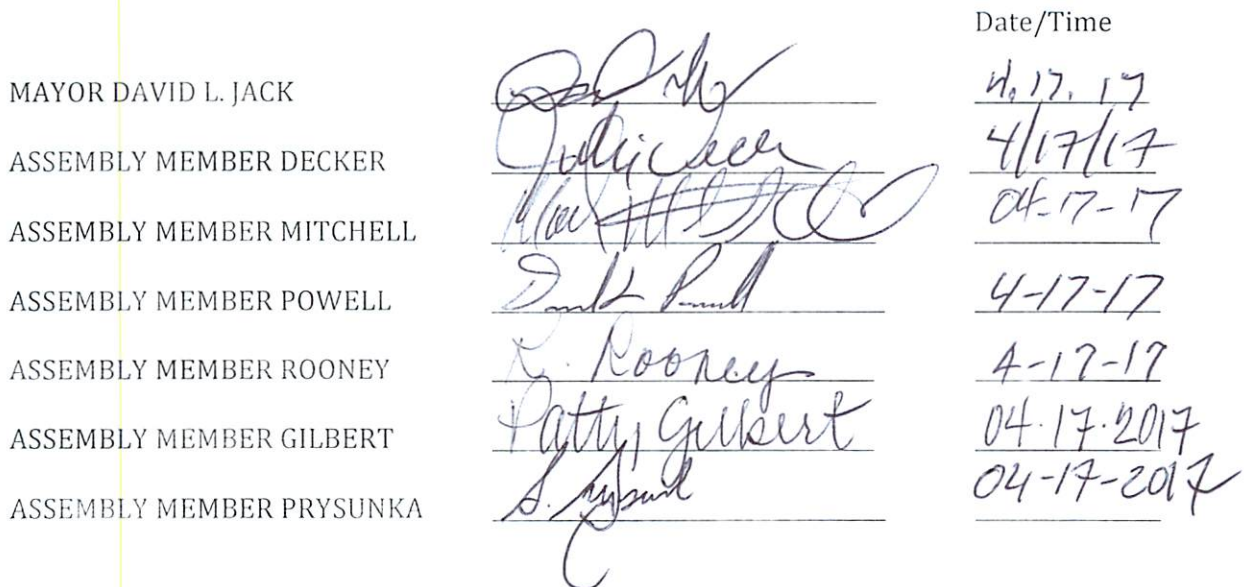 Date/Time
MAYOR DAVID L. JACK 4.17.17
ASSEMBLY MEMBER DECKER 4/17/17
ASSEMBLY MEMBER MITCHELL 04-17-17
ASSEMBLY MEMBER POWELL 4-17-17
ASSEMBLY MEMBER ROONEY R. Rooney 4-17-17
ASSEMBLY MEMBER GILBERT Patty Gilbert 04.17.2017
ASSEMBLY MEMBER PRYSUNKA 04-17-2017